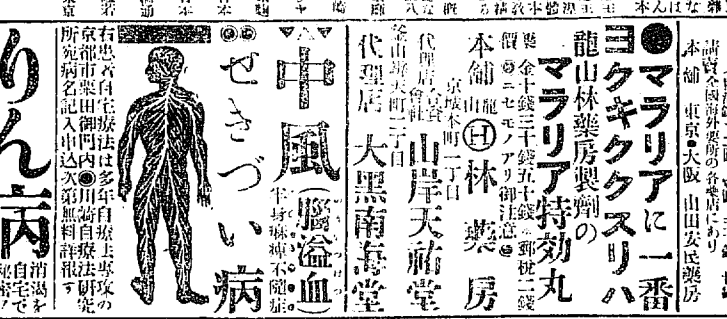 講賣全國海外要所の各藥店にあり
本舖 東京・大阪 山田安民藥房
●マラリアに一番
ヨクキククスリハ
龍山林藥房製劑の
マラリア特効丸
金十錢三十錢五十錢 郵税二錢
ニセモノアリ御注意
本舖 龍山 Ⓗ 林藥房
京城本町一丁目
代理店 山岸天祐堂
釜山辨天町一丁目
代理店 大黑南海堂
中風(腦溢血)
半身麻痺不隨症
◎◎せきづい病
右患者自宅療法は多年自療上專攻の
京都市粟田御門内◎川崎自療法研究
所宛病名記入申込次第無料詳報す
りん病
消渇を
自宅で